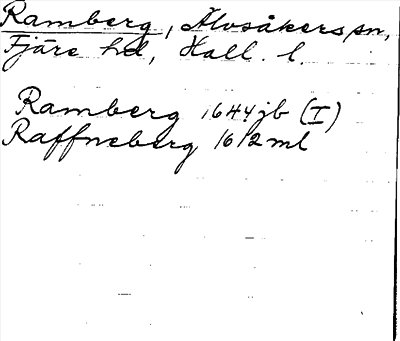 Ramberg, Älvsåkers sn,
Fjäre hd, Hall. l.
Ramberg 1644 jb (I)
Raffneberg 1612 ml